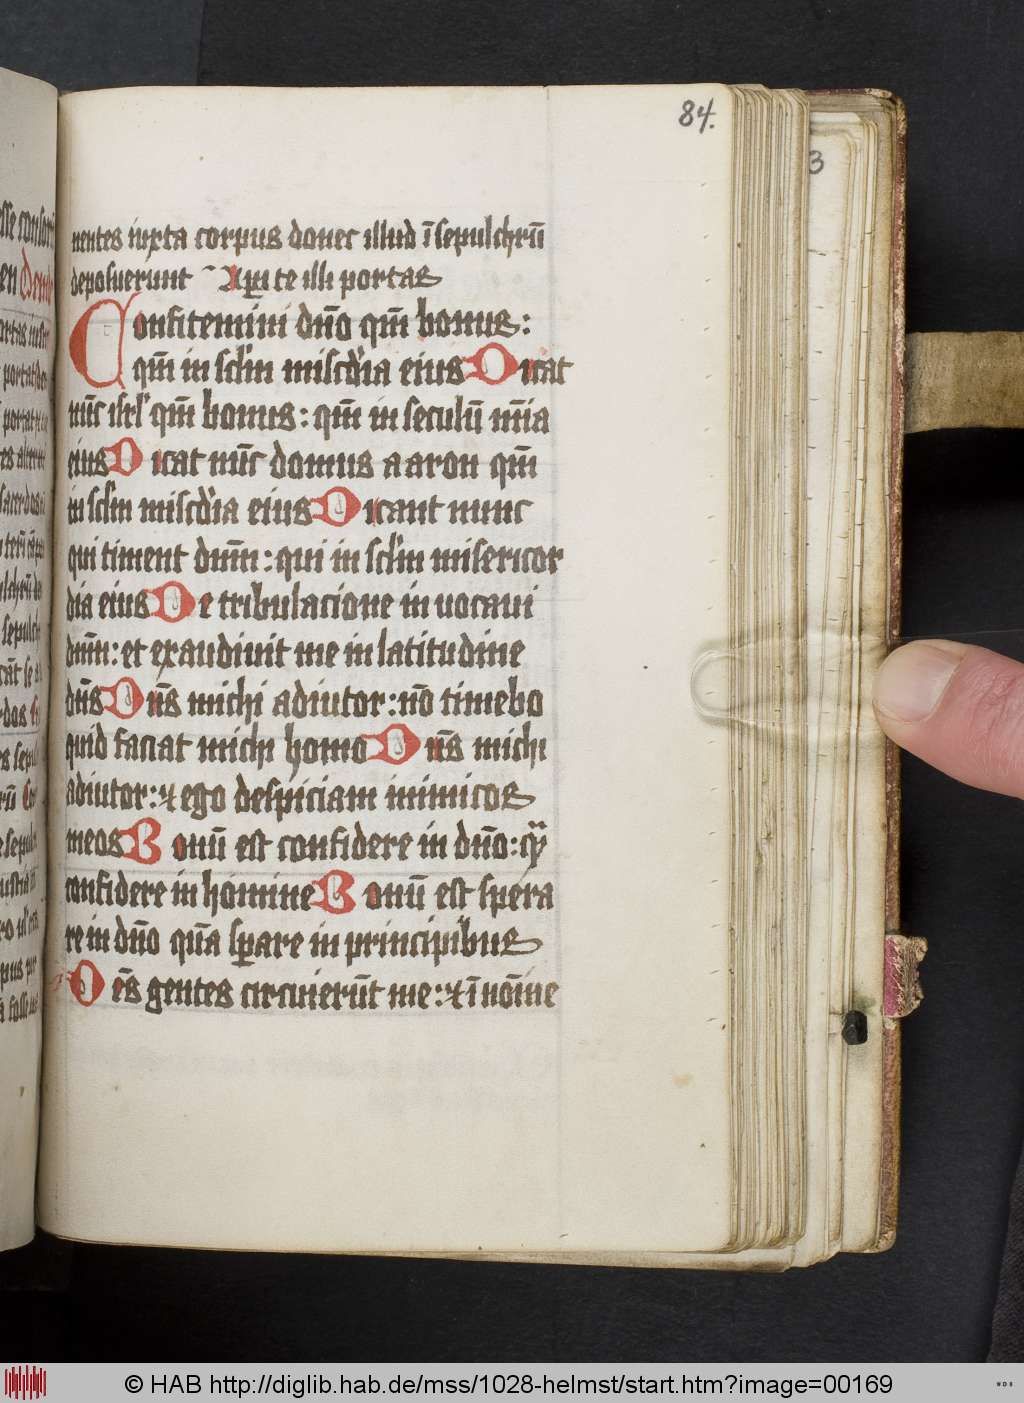 84.
3
nentes iuxta corpus donec illud ī sepulchrū
deposuerunt Aꝑite illi portas
Confitemini dn̄o qm̄ bonus:
qm̄ in sclm̄ misc̄dia eius Dicat
nūc isrl' qm̄ bonus: qm̄ in seculū mīa
eius Dicat nūc domus aaron qm̄
in sclm̄ misc̄dia eius Dicant nunc
qui timent dnm̄: qui in sclm̄ misericor
dia eius De tribulacione in uocaui
dnm̄: et exaudiuit me in latitudine
dn̄s Dn̄s michi adiutor: nō timebo
quid faciat michi homo Dn̄s michi
adiutor: ⁊ ego despiciam inimicos
meos Bonū est confidere in dn̄o: qͣ̄
confidere in homine Bonū est spera
re in dn̄o qūa sꝑare in principibus
Oēs gentes circuierūt me: ⁊ ī nōine
© HAB http://diglib.hab.de/mss/1028-helmst/start.htm?image=00169